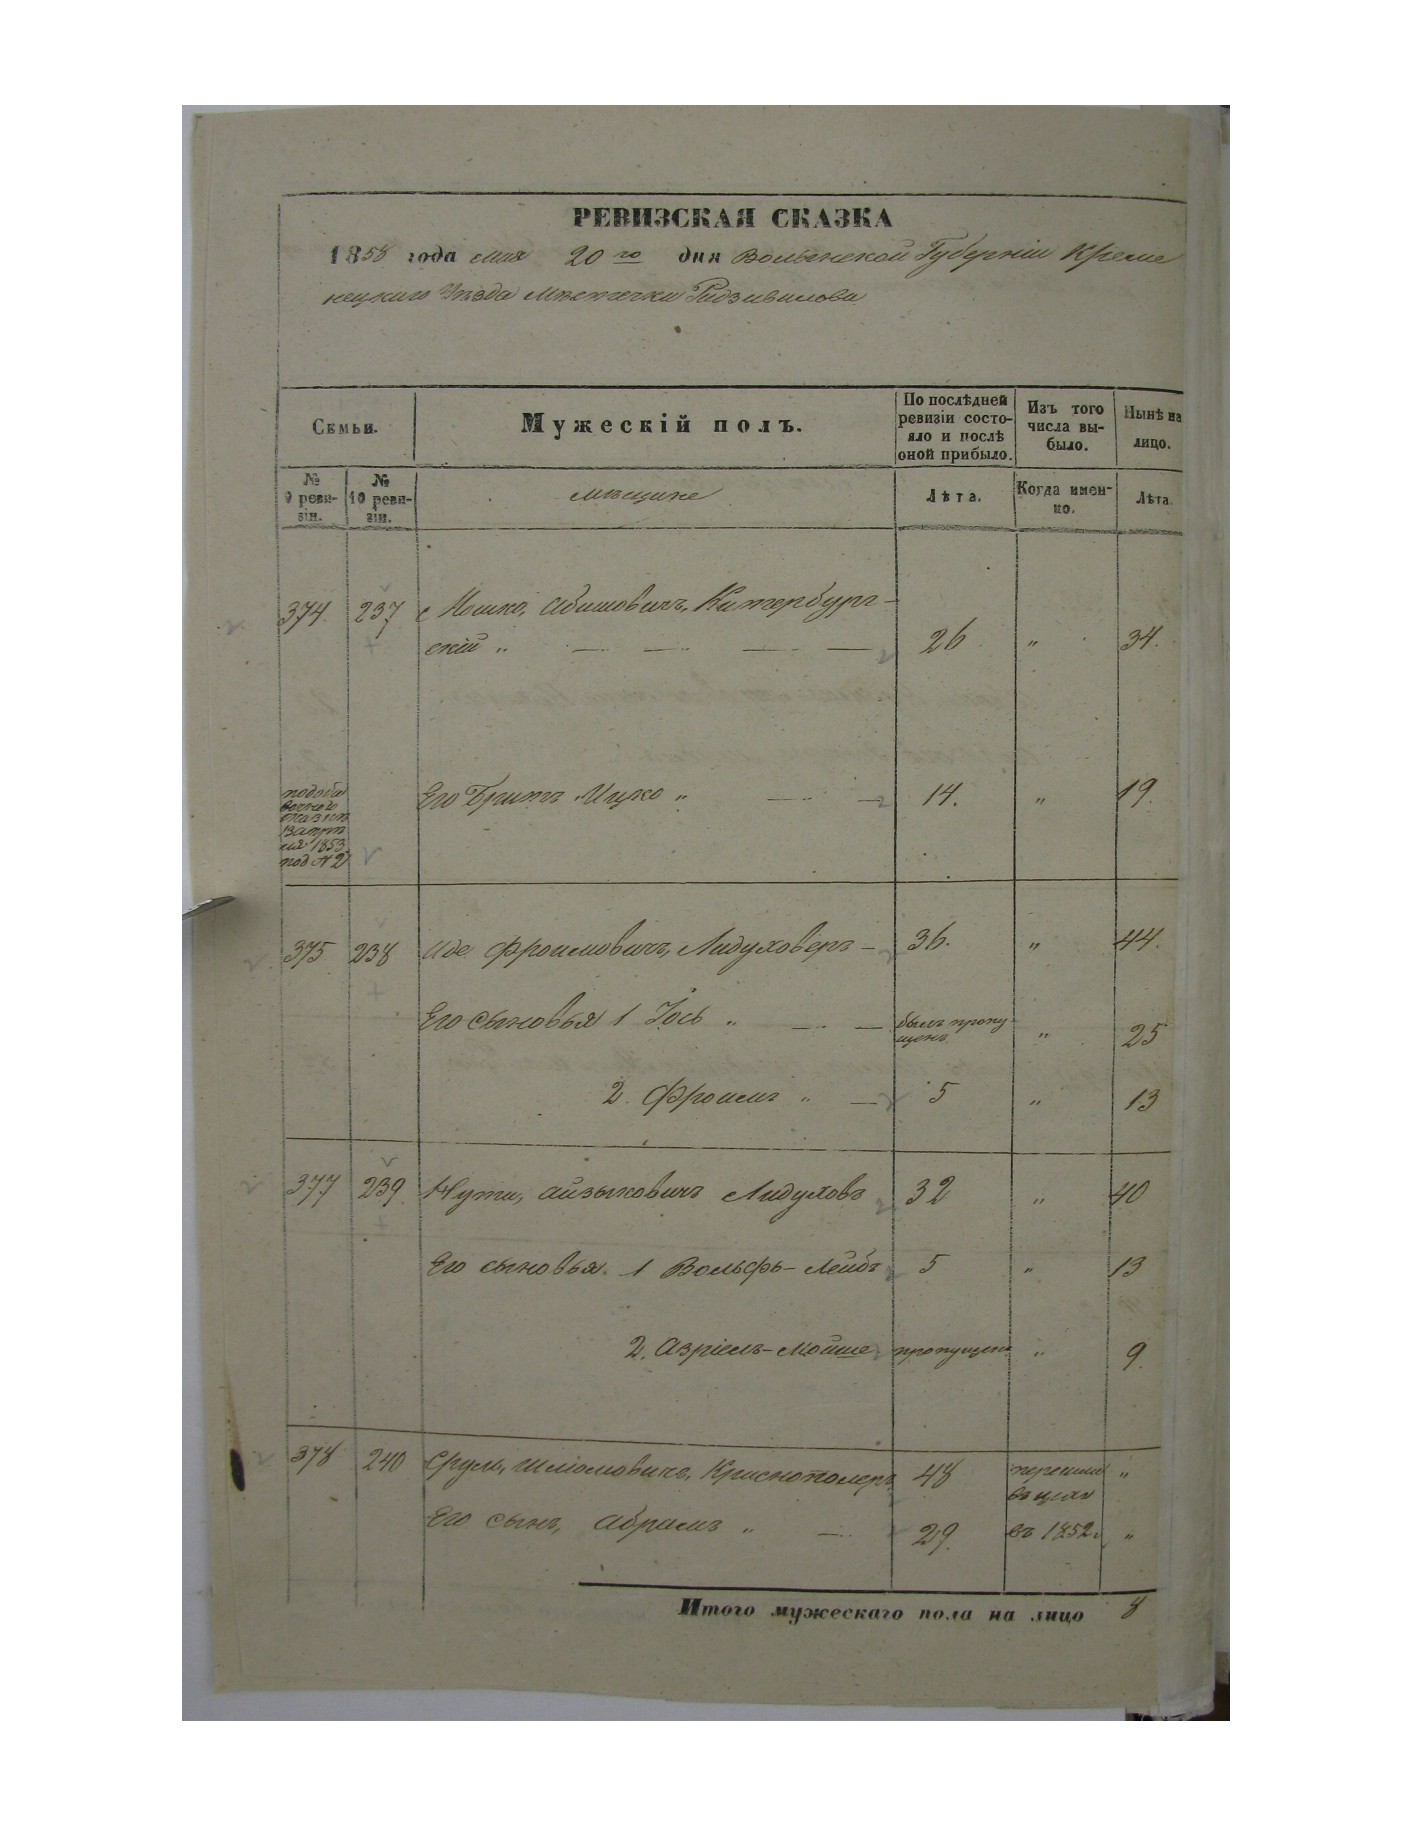 РЕВИЗСКАЯ СКАЗКА
1858 года мая 20го дня Волынской Губерніи Креме
нецкаго Уѣзда Мѣстечка Радзивилова
Семьи.
Мужескій полъ.
По послѣдней ревизіи состо-
яло и послѣ оной прибыло.
Изъ того числа вы-
было.
Нынѣ на лицо.
№ 9 реви-
зіи.
№ 10 реви-
зіи.
мѣщане
Лѣта.
Когда имен-
но.
Лѣта.
374. 237 Мошко, Абишовичъ, Китербург-
скій „ 26 „ 34.
Его Братъ Ицко „ 14. „ 19.
1853
под № 2
375 238 Иде Фроимовичъ, Лидуховеръ – 36. „ 44.
Его сыновья 1 Іось „ былъ пропу
щенъ „ 25
2. Фроимъ „ 5 „ 13
377 239 Нута, Айзыковичъ Лидуховъ 32 „ 40
Его сыновья. 1 Вольфъ-Лейбъ 5 „ 13
2. Азріель-Мойше пропущенъ „ 9.
378 240 Сруль, Шліомовичъ, Краснополеръ 48 „
Его сынъ, Абрамъ „ 29. въ 1852 „
Итого мужескаго пола на лицо 8